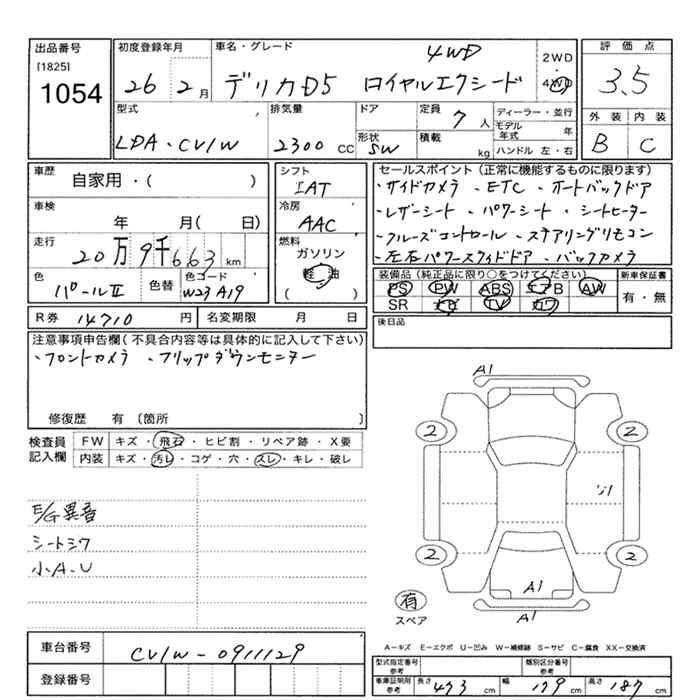 出品番号
[1825]
1054
初度登録年月
26年 2月
車名・グレード
4WD
デリカD5 ロイヤルエクシード
2WD
4WD
評価点
3.5
外装 内装
B C
型式
LDA・CV1W
排気量
2300 CC
ドア
形状
SW
定員
7人
積載
kg
ディーラー・並行
モデル年式 年
ハンドル 左・右
車歴
自家用・( )
車検
年 月( 日)
走行
20万9千663km
色
パールII
色替
色コード
W23 A19
シフト
IAT
冷房
AAC
燃料
ガソリン
軽油
( )
セールスポイント(正常に機能するものに限ります)
・サイドカメラ ・ETC ・オートバックドア
・レザーシート ・パワーシート ・シートヒーター
・クルーズコントロール ・ステアリングリモコン
・左右パワースライドドア ・バックカメラ
装備品(純正品に限り○をつけてください)
PS PW ABS エアB AW
SR ナビ TV カワ
新車保証書
有・無
R券 14710 円
名変期限 月 日
後日品
注意事項申告欄(不具合内容等は具体的に記入して下さい)
・フロントカメラ ・フリップダウンモニター
修復歴 有〔箇所 〕
検査員記入欄
FW キズ・飛石・ヒビ割・リペア跡・X要
内装 キズ・汚レ・コゲ・穴・スレ・キレ・破レ
E/G異音
シートシワ
小A.U
A1
2 2
2 2
A1
A1
有
スペア
A－キズ E－エクボ U－凹み W－補修跡 S－サビ C－腐食 XX－交換済
車台番号
CV1W-0911129
登録番号
型式指定番号 参考
類別区分番号 参考
車庫証明用 参考
長さ 473 cm 幅 179 cm 高さ 187 cm